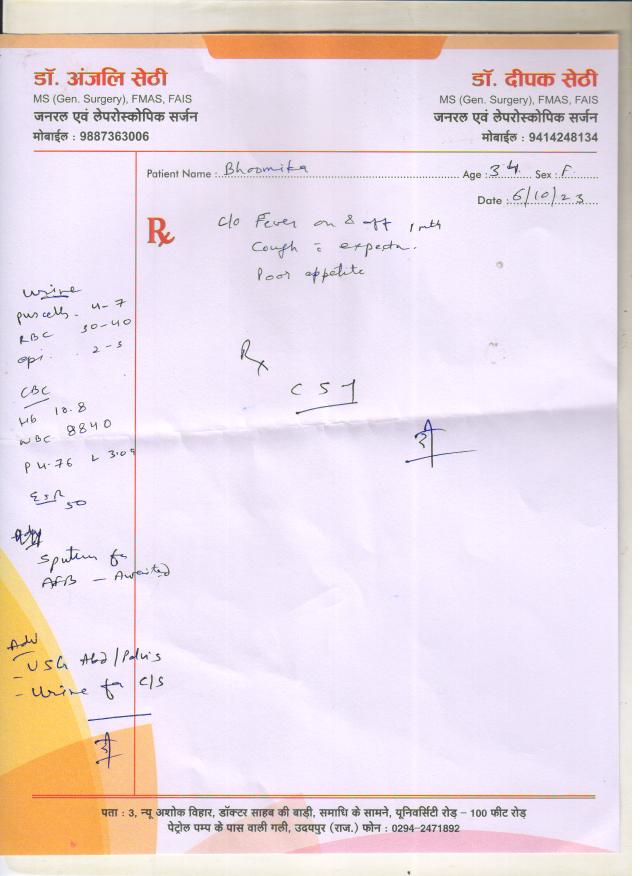 डॉ. अंजलि सेठी
MS (Gen. Surgery), FMAS, FAIS
जनरल एवं लेपरोस्कोपिक सर्जन
मोबाईल : 9887363006
डॉ. दीपक सेठी
MS (Gen. Surgery), FMAS, FAIS
जनरल एवं लेपरोस्कोपिक सर्जन
मोबाईल : 9414248134
Patient Name : Bhoomika Age : 34 Sex : F
Date : 6/10/23
Rx
c/o Fever on & off 1 mth
Cough c expectn.
Poor appetite
Urine
puscells - 4-7
RBC 30-40
epi. 2-3
CBC
Hb 10.8
WBC 8840
P 4.76 L 3.09
ESR 50
Sputum for
AFB - Awaited
Rx
CST
Adv
- USG Abd/Pelvis
- Urine for C/S
पता : 3, न्यू अशोक विहार, डॉक्टर साहब की बाड़ी, समाधि के सामने, यूनिवर्सिटी रोड़ – 100 फीट रोड़
पेट्रोल पम्प के पास वाली गली, उदयपुर (राज.) फोन : 0294-2471892